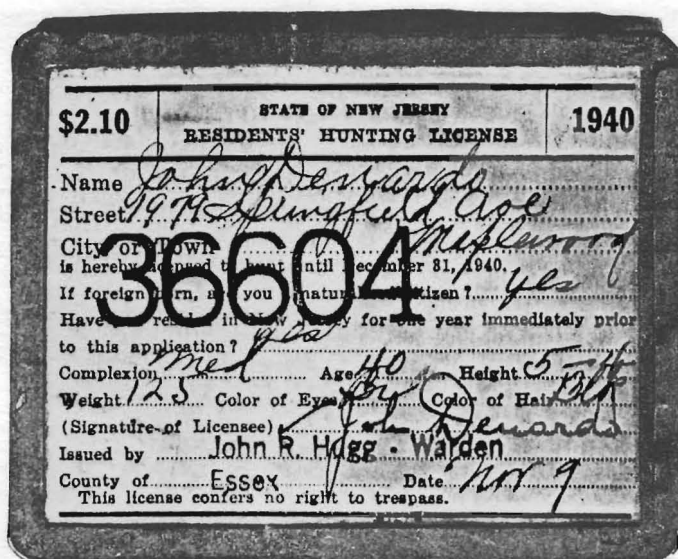 $2.10 STATE OF NEW JERSEY 1940
RESIDENTS' HUNTING LICENSE
Name John Denardo
Street 1979 Springfield Ave
City or Town Maplewood
36604
is hereby licensed to hunt until December 31, 1940.
If foreign born, are you naturalized citizen? yes
Have you resided in New Jersey for one year immediately prior
to this application? yes
Complexion Med Age 40 Height 5-
Weight 125 Color of Eyes Color of Hair Blk
(Signature of Licensee) John Denardo
Issued by John R. Hogg - Warden
County of Essex Date Nov 9
This license confers no right to trespass.